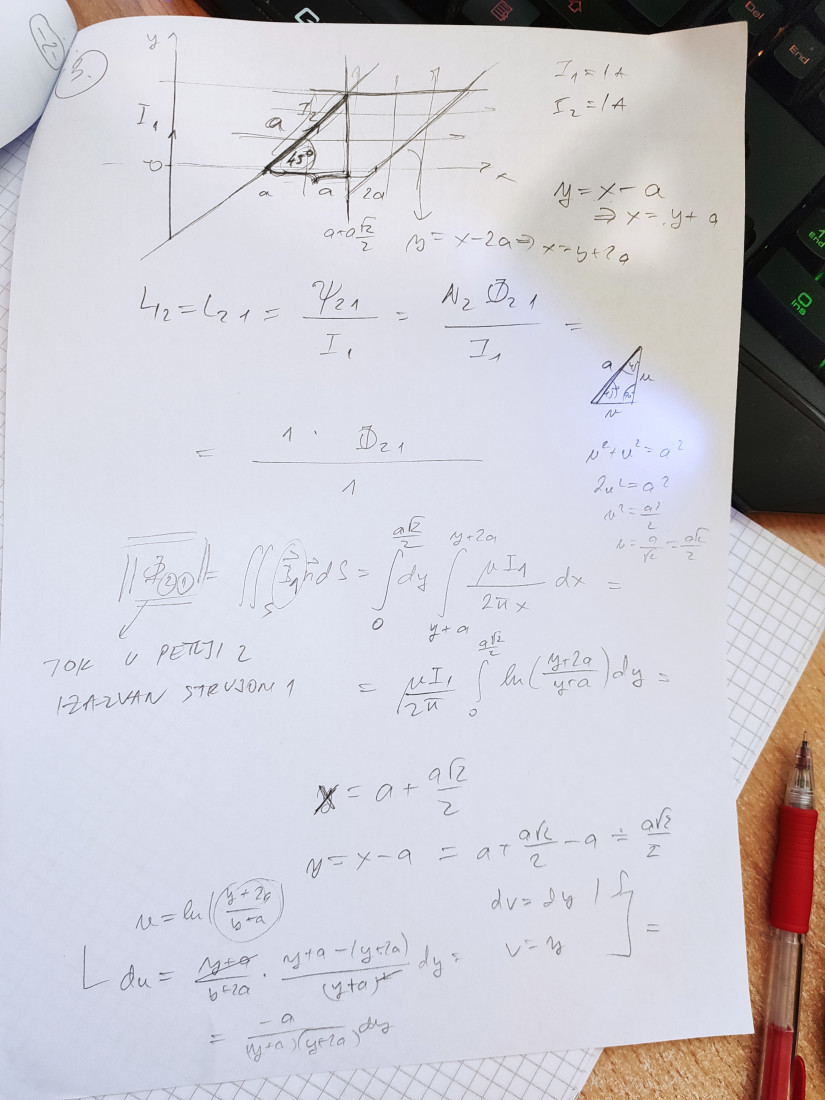 -2-
3.
y
I₁
0
a
I₂
45°
a a 2a
x
a+a√2/2
I₁ = 1A
I₂ = 1A
y = x - a
⇒ x = y + a
y = x - 2a ⇒ x = y + 2a
L₁₂ = L₂₁ = Ψ₂₁/I₁ = N₂ Φ₂₁/I₁ =
= 1 · Φ₂₁/1
a
45°
u
u
u² + u² = a²
2u² = a²
u² = a²/2
u = a/√2 = a√2/2
||Φ₂₁|| = ∬_S B⃗₁ n⃗ dS = ∫₀^{a√2/2} dy ∫_{y+a}^{y+2a} μI₁/(2πx) dx =
TOK U PETLJI 2
IZAZVAN STRUJOM 1
= μI₁/2π ∫₀^{a√2/2} ln((y+2a)/(y+a)) dy =
x = a + a√2/2
y = x - a = a + a√2/2 - a = a√2/2
u = ln((y+2a)/(y+a))
dv = dy / ∫
du = (y+a)/(y+2a) · (y+a-(y+2a))/(y+a)² dy =
v = y
=
= -a/((y+a)(y+2a)) dy
Del
End
1
End
0
Ins